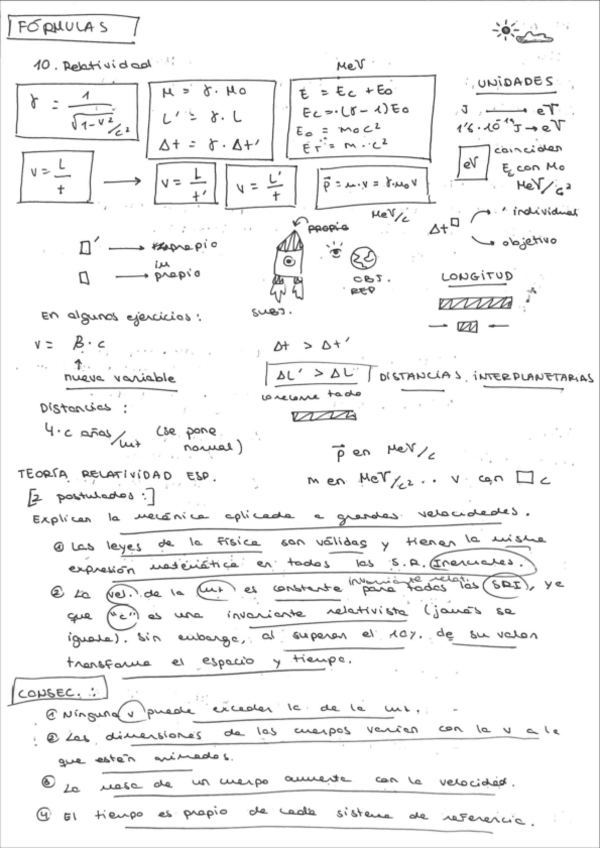 FÓRMULAS
10. Relatividad
γ = 1 / √1-v²/c²
M = γ · M₀
L' = γ · L
Δt = γ · Δt'
MeV
E = Ec + E₀
Ec = (γ - 1) E₀
E₀ = m₀c²
ET = m · c²
UNIDADES
J → eV
1'6 · 10⁻¹⁹ J → eV
eV
coinciden
E₀ con M₀
MeV/c²
v = L / t → v = L / t'
v = L' / t
p⃗ = m · v = γ · m₀ v
MeV/c
□' → impropio
□ → propio
PROPIO
SUBJ.
OBJ.
REP
Δt □
' individual
objetivo
LONGITUD
En algunos ejercicios:
v = β · c
nueva variable
Δt > Δt'
ΔL' > ΔL
DISTANCIAS INTERPLANETARIAS
Distancias:
4 · c años/luz (se pone normal)
p⃗ en MeV/c
m en MeV/c² .. v con □ c
TEORÍA RELATIVIDAD ESP.
[2 postulados:]
Explican la mecánica aplicada a grandes velocidades.
① Las leyes de la Física son válidas y tienen la misma
expresión matemática en todos los S.R. Inerciales.
invariante relat.
② La vel. de la luz es constante para todos los (SRI), ya
que "c" es una invariante relativista (jamás se
iguala). Sin embargo, al superar el 10%. de su valor
transforma el espacio y tiempo.
CONSEC. :
① Ninguna v puede exceder la de la luz.
② Las dimensiones de los cuerpos varían con la v a la
que estén animados.
③ La masa de un cuerpo aumenta con la velocidad.
④ El tiempo es propio de cada sistema de referencia.